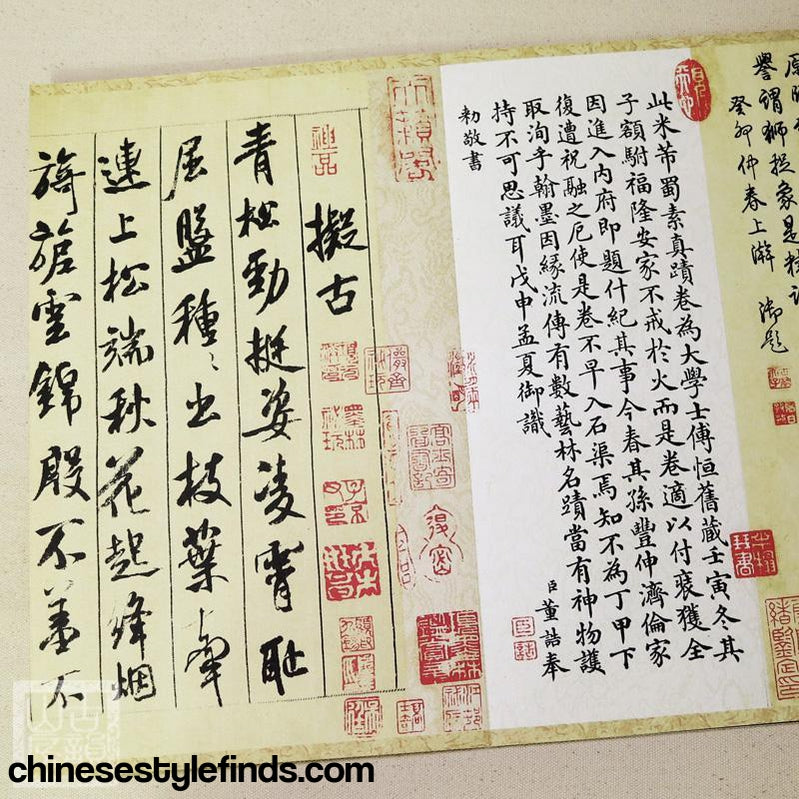 譽謂獅捉象是精訣
癸卯仲春上澣 御題
此米芾蜀素真蹟卷為大學士傅恒舊藏壬寅冬其
子額駙福隆安家不戒於火而是卷適以付裝獲全
因進入內府即題什紀其事今春其孫豐伸濟倫家
復遭祝融之厄使是卷不早入石渠焉知不為丁甲下
取洵乎翰墨因緣流傳有數藝林名蹟當有神物護
持不可思議耳戊申孟夏御識
臣董誥奉
勅敬書
神品
擬古
青松勁挺姿凌霄恥
屈盤種〻出枝葉牽
連上松端秋花起絳烟
旖旎雲錦殷不羞不
chinesestylefinds.com